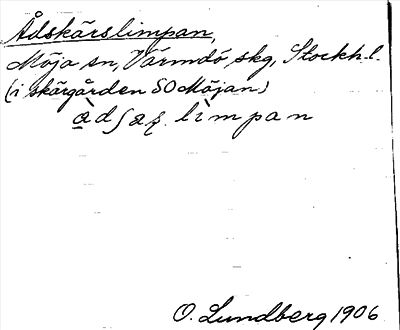 Ådskärslimpan,
Möja sn, Värmdö skg, Stockh. l.
(i skärgården SO Möjan)
limpan
O. Lundberg 1906